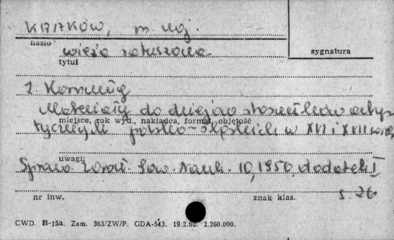 KRAKÓW, m. woj.
hasło
wieża ratuszowa
sygnatura
tytuł
Z. Kornecki
Materiały do dziejów stosunków artys
tycznych polsko-śląskich w XVI i XVII wieku,
miejsce, rok wyd., nakładca, format, objętość
uwagi
Spraw. Wroc. Tow. Nauk. 10, 1950, dodatek I
s. 26
nr inw.
znak klas.
CWD. B-15a. Zam. 363/ZW/P. GDA-543. 19.2.62. 2.260.000.